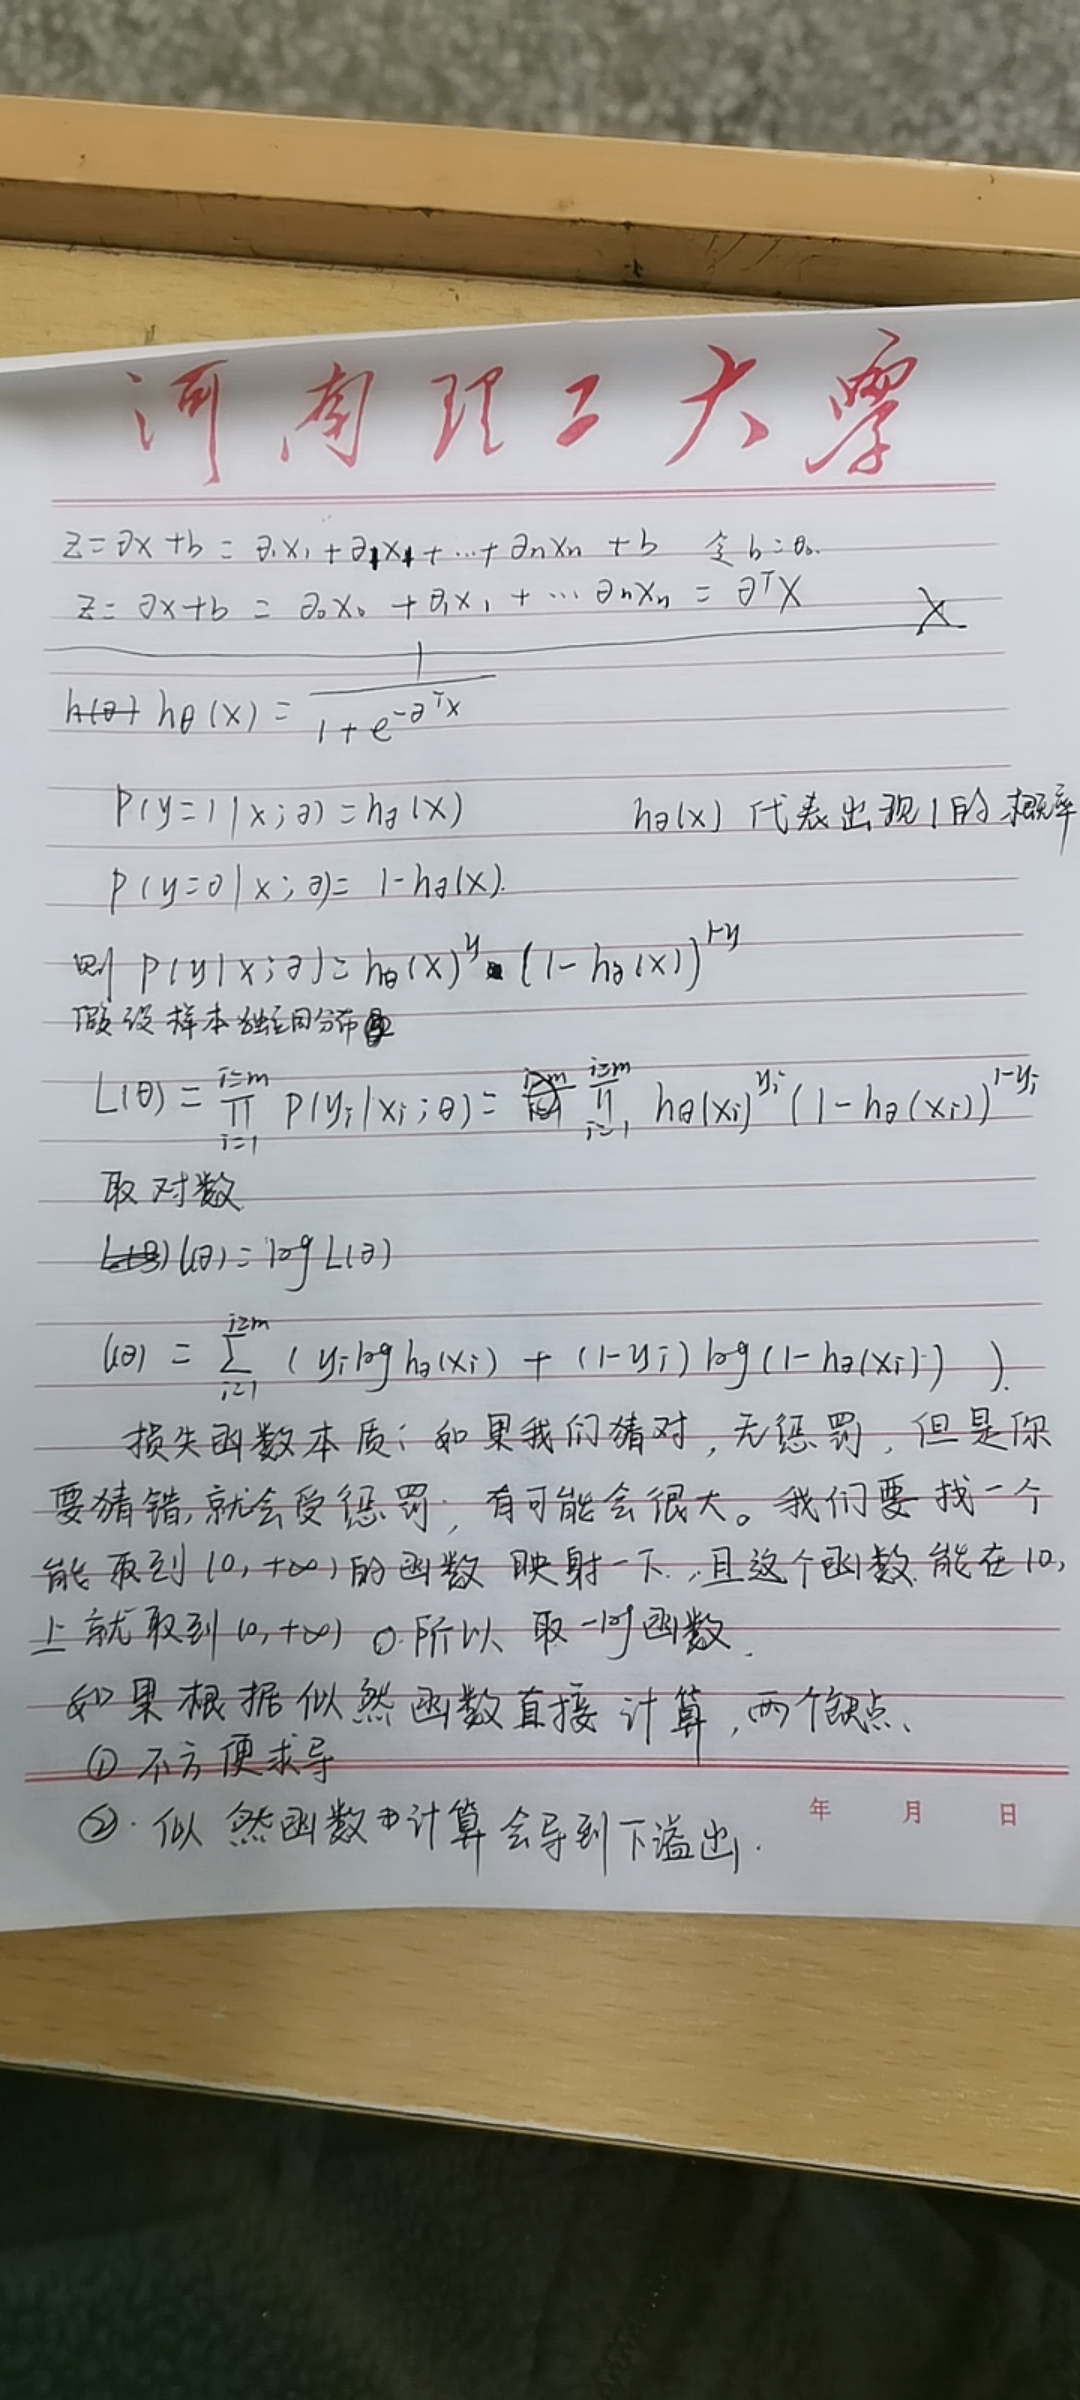 河南理工大学
z=∂x+b = ∂₁x₁+∂₁x₁+…+∂nxn+b 令b=θ₀.
z=∂x+b = ∂₀x₀+∂₁x₁+…∂nxn = ∂ᵀX
hθ(x) = 1/(1+e^(-∂ᵀx))
P(y=1|x;∂)=h∂(x) h∂(x) 代表出现1的概率
P(y=0|x;∂)=1-h∂(x).
则 P(y|x;∂)=hθ(x)^y (1-h∂(x))^(1-y)
假设样本独立同分布
L(θ) = ∏(i=1, i=m) P(yi|xi;θ) = ∏(i=1, i=m) hθ(xi)^yi (1-h∂(xi))^(1-yi)
取对数
l(∂)=log L(∂)
l(∂) = ∑(i=1, i=m) (yi log h∂(xi) + (1-yi) log(1-h∂(xi))).
损失函数本质;如果我们猜对,无惩罚,但是你
要猜错,就会受惩罚,有可能会很大。我们要找一个
能取到(0,+∞)的函数映射一下.,且这个函数能在(0,
上就取到(0,+∞) 所以取-log函数.
如果根据似然函数直接计算,两个缺点、
① 不方便求导
②. 似然函数中计算会导到下溢出.
年 月 日